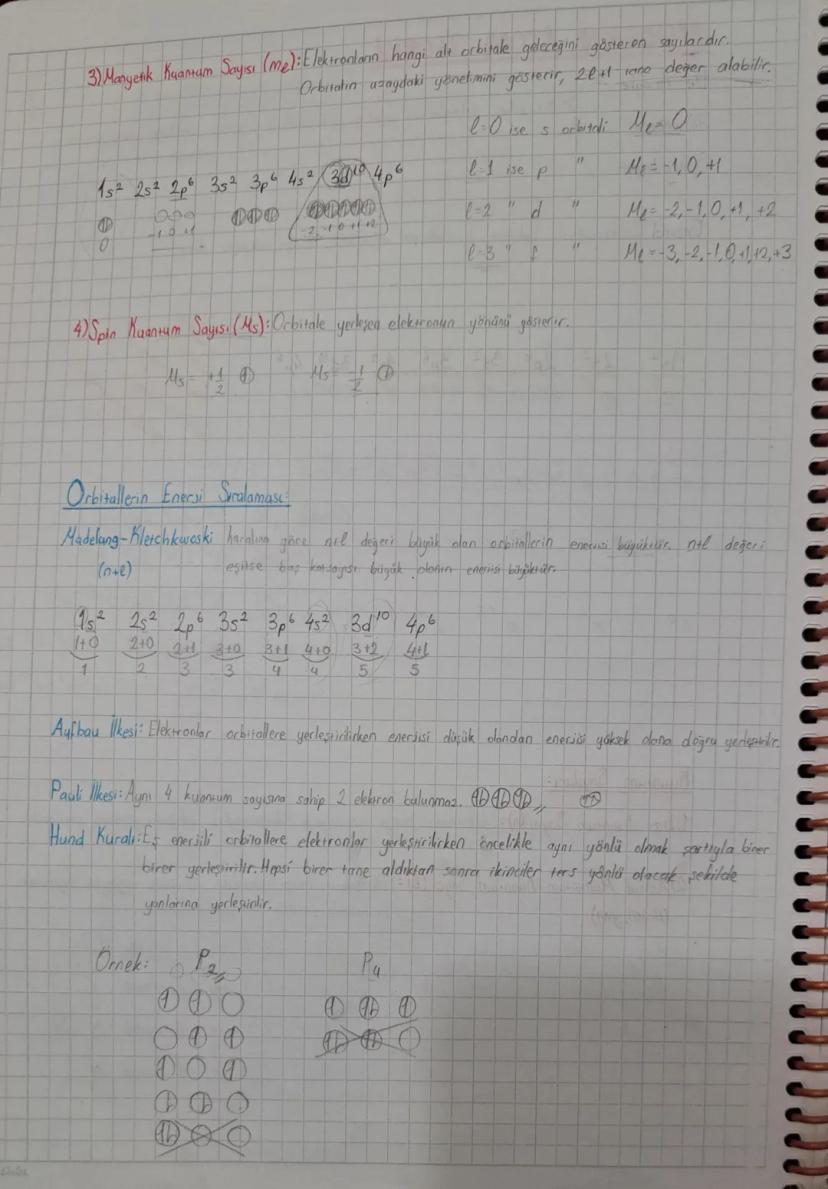 3) Manyetik Kuantum Sayısı (mℓ): Elektronların hangi alt orbitale geleceğini gösteren sayılardır.
Orbitalin uzaydaki yönelimini gösterir, 2ℓ+1 tane değer alabilir.
ℓ=0 ise s orbitali Mℓ= 0
1s² 2s² 2p⁶ 3s² 3p⁶ 4s² 3d¹⁰ 4p⁶
ℓ=1 ise p " Mℓ= -1, 0, +1
0 -1 0 +1 -2 -1 0 +1 +2
ℓ=2 " d " Mℓ= -2, -1, 0, +1, +2
ℓ=3 " f " Mℓ= -3, -2, -1, 0, +1, +2, +3
4) Spin Kuantum Sayısı (Ms): Orbitale yerleşen elektronun yönünü gösterir.
Ms= +1/2 Ms= -1/2
Orbitallerin Enerji Sıralaması:
Madelang-Kletchkwoski kuralına göre n+ℓ değeri büyük olan orbitallerin enerjisi büyüktür. n+ℓ değeri
(n+ℓ) eşitse baş katsayısı büyük olanın enerjisi büyüktür.
1s² 2s² 2p⁶ 3s² 3p⁶ 4s² 3d¹⁰ 4p⁶
1+0 2+0 2+1 3+0 3+1 4+0 3+2 4+1
1 2 3 3 4 4 5 5
Aufbau İlkesi: Elektronlar orbitallere yerleştirilirken enerjisi düşük olandan enerjisi yüksek olana doğru yerleştirilir.
Pauli İlkesi: Aynı 4 kuantum sayısına sahip 2 elektron bulunmaz.
Hund Kuralı: Eş enerjili orbitallere elektronlar yerleştirilirken öncelikle aynı yönlü olmak şartıyla birer
birer yerleştirilir. Hepsi birer tane aldıktan sonra ikinciler ters yönlü olacak şekilde
yanlarına yerleştirilir.
Örnek: P₂ P₄